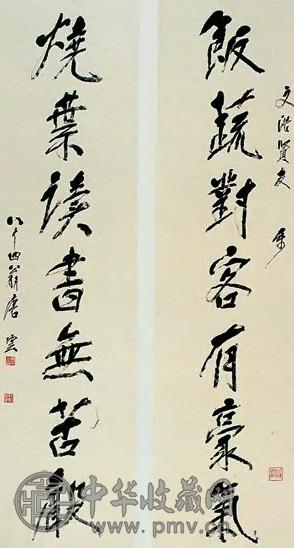 文浩賢友
飯蔬對客有豪氣
燒葉讀書無苦聲
八十四翁唐雲
中华收藏网
www.pmv.cn